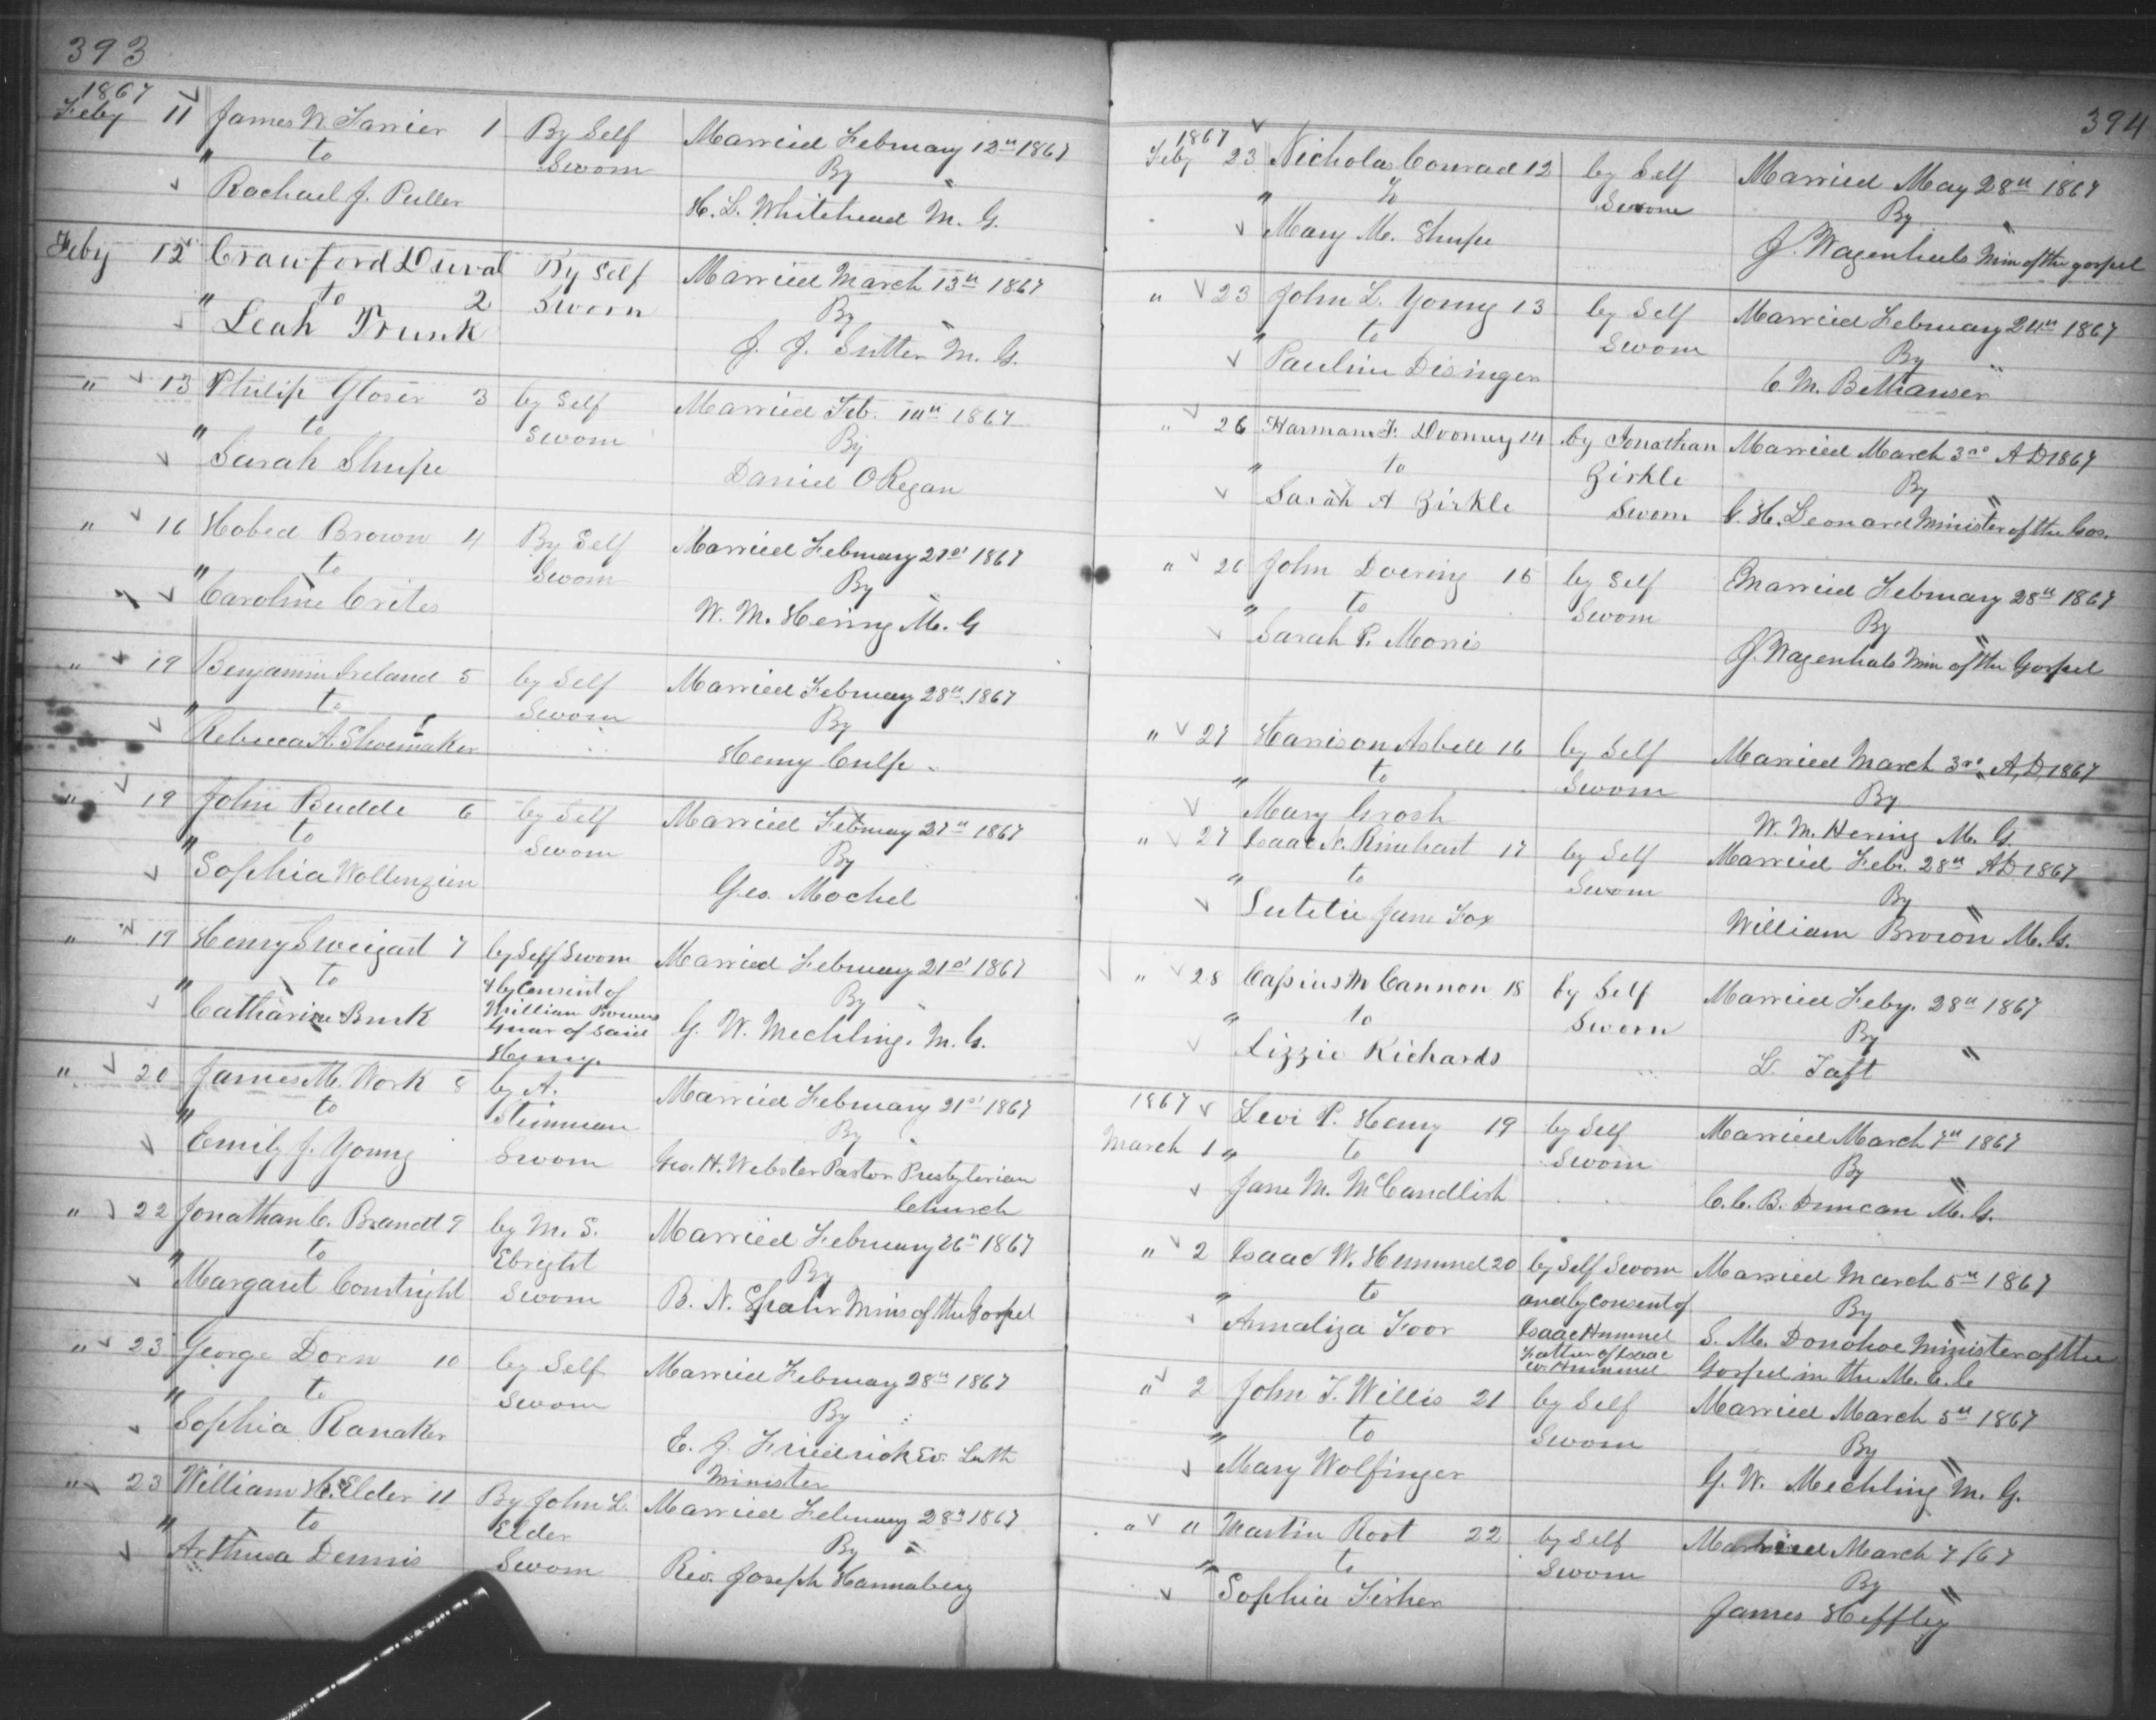 393
1867
Feby 11 James W. Farrier 1 By Self Married February 12th 1867
" to Sworn By "
Rachael J. Puller H. L. Whitehead M. G.
Feby 12 Crawford Duval By Self Married March 13th 1867
" to 2 Sworn By "
Leah Trunk J. J. Sutter M. G.
" 13 Philip Gloser 3 by Self Married Feb. 14th 1867
" to Sworn By
Sarah Shupe Daniel O Regan
" 16 Hobed Brown 4 By Self Married February 21st 1867
" to Sworn By "
Caroline Crites W. M. Hering M. G
" 19 Benjamin Ireland 5 by Self Married February 28th 1867
" to Sworn By
Rebecca A. Shoemaker Henry Culp
" 19 John Budde 6 by Self Married February 27th 1867
" to Sworn By
Sophia Wollenzien Geo. Mochel
" 19 Henry Sweigart 7 by Self Sworn Married February 21st 1867
" to & by Consent of By "
Catharine Busk William Bowers G. W. Mechling. M. G.
Guar of said
Henry.
" 20 James M. Work 8 by A. Married February 21st 1867
" to Steinman By "
Emily J. Young Sworn Geo. H. Webster Pastor Presbyterian
Church
" 22 Jonathan C. Brandt 9 by M. S. Married February 26th 1867
" to Ebright By
Margaret Courtright Sworn B. N. Spahr Minis of the Gospel
" 23 George Dorn 10 by Self Married February 28th 1867
" to Sworn By
Sophia Ranaker E. J. Friedrich Ev. Luth
Minister
" 23 William H. Elder 11 By John L. Married February 28th 1867
" to Elder By "
Arthusa Dennis Sworn Rev. Joseph Hannabery
394
1867
Feby 23 Nicholas Conrad 12 by Self Married May 28th 1867
" to Sworn By "
Mary M. Shupe J. Wagenhals Min of the gospel
" 23 John L. Young 13 by Self Married February 24th 1867
" to Sworn By "
Pauline Disinger C. M. Bethauser
" 26 Harman F. Doomey 14 by Jonathan Married March 3rd AD 1867
" to Zirkle By "
Sarah A Zirkle Sworn C. H. Leonard Minister of the Gos.
" 26 John Doering 15 by Self Married February 28th 1867
" to Sworn By "
Sarah P. Morris J. Wagenhals Min of the Gospel
" 27 Harrison Asbell 16 by Self Married March 3rd A, D 1867
" to Sworn By "
Mary Grosh W. M. Hering M. G.
" 27 Isaac N. Rinehart 17 by Self Married Feb. 28th AD 1867
" to Sworn By "
Lutetie Jane Fox William Brown M. G.
" 28 Cassius M Cannon 18 by Self Married Feby. 28th 1867
" to Sworn By "
Lizzie Richards L. Taft
1867 Levi P. Henry 19 by Self Married March 7th 1867
March 1 " to Sworn By "
Jane M. McCandlish C. C. B. Duncan M. G.
" 2 Isaac W. Hummel 20 by Self Sworn Married March 5th 1867
" to and by consent of By "
Annaliza Foor Isaac Hummel S. M. Donohoe Minister of the
Father of Isaac
W. Hummel Gospel in the M. E. C
" 2 John T. Willis 21 by Self Married March 5th 1867
" to Sworn By "
Mary Wolfinger G. W. Mechling M. G.
" " Martin Root 22 by Self Married March 7/67
" to Sworn By "
Sophia Fisher James Heffley